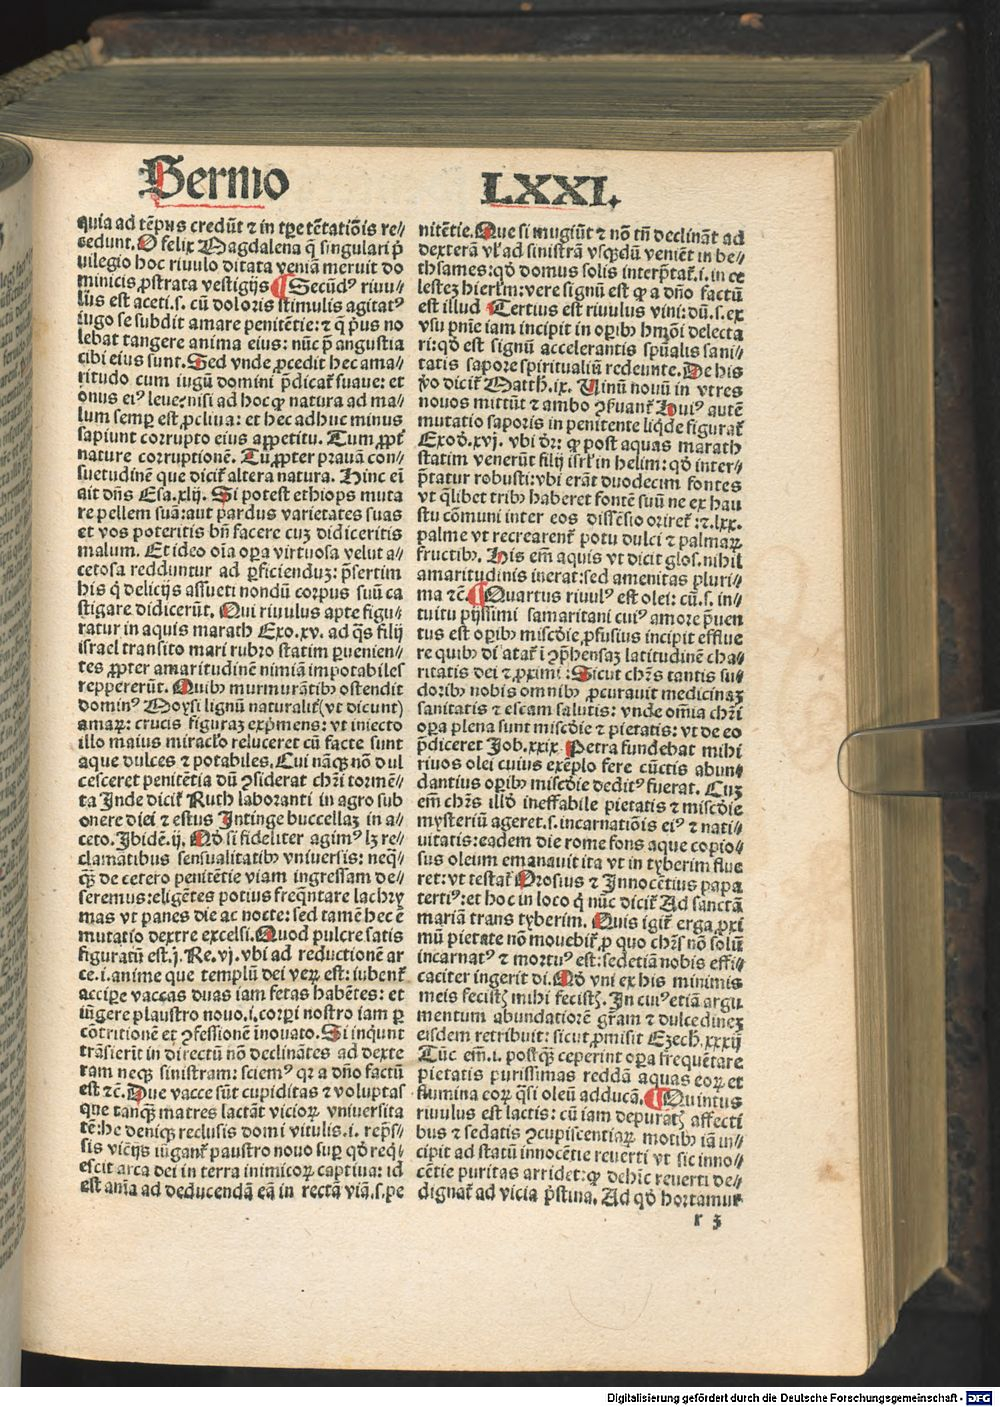 Sermo LXXI.
quia ad tēpus credūt ⁊ in tꝑe tētatiōis re⸗
cedunt. O felix Magdalena q̄ singulari p̄
uilegio hoc riuulo ditata veniā meruit do
minicis ꝓstrata vestigijs ¶ Secūdꝰ riuu⸗
lus est aceti. s. cū doloris stimulis agitatꝰ
iugo se subdit amare penitētie: ⁊ q̄ pͥus no
lebat tangere anima eius: nūc p̄ angustia
cibi eius sunt. Sed vnde ꝓcedit hec ama⸗
ritudo cum iugū domini p̄dicat᷑ suaue: et
onus eiꝰ leue: nisi ad hoc ꝙ natura ad ma⸗
lum semꝑ est ꝓcliua: et hec adhuc minus
sapiunt corrupto eius appetitu. Tum ꝓpt᷑
nature corruptionē. Tū ꝓpter prauā con⸗
suetudinē que dicit᷑ altera natura. Hinc em̄
ait dn̄s Esa. xlij. Si potest ethiops muta
re pellem suā: aut pardus varietates suas
et vos poteritis bn̄ facere cuꝫ didiceritis
malum. Et ideo oīa oꝑa virtuosa velut a⸗
cetosa redduntur ad ꝑficienduꝫ: p̄sertim
his q̄ delicijs assueti nondū corpus suū ca
stigare didicerūt. Qui riuulus apte figu⸗
ratur in aquis marath Exo. xv. ad q̄s filij
israel transito mari rubro statim ꝑuenien⸗
tes ꝓpter amaritudinē nimiā impotabiles
reppererūt. Quibꝫ murmurātibꝫ ostendit
dominꝰ Moysi lignū naturalit᷑ (vt dicunt)
amaꝝ: crucis figuraꝫ exp̄mens: vt iniecto
illo maius miracl̄o reluceret cū facte sunt
aque dulces ⁊ potabiles. Cui nāqꝫ nō dul
cesceret penitētia dū ꝯsiderat chr̄i tormē⸗
ta Inde dicit᷑ Ruth laboranti in agro sub
onere diei ⁊ estus Intinge buccellaꝫ in a⸗
ceto. Ibidē. ij. Qd̄ si fideliter agimꝰ lꝫ re⸗
clamātibus sensualitatibꝫ vniuersis: neqͣ⸗
qꝫ̄ de cetero penitētie viam ingressam de⸗
seremus: eligētes potius freq̄ntare lachry
mas vt panes die ac nocte: sed tamē hec ē
mutatio dextre excelsi. Quod pulcre satis
figuratū est. j. Re. vj. vbi ad reductionē ar
ce. i. anime que templū dei veꝝ est: iubent᷑
accipe vaccas duas iam fetas habētes: et
iūgere plaustro nouo. i. corꝑi nostro iam ꝑ
cōtritionē et ꝯfessionē īnouato. Si inqunt
trāsierīt in directū nō declinātes ad dexte
ram neqꝫ sinistram: sciemꝰ qꝛ a dn̄o factū
est ⁊c̄. Due vacce sūt cupiditas ⁊ voluptas
que tanqꝫ matres lactāt vicioꝝ vniuersita
tē: he deniqꝫ reclusis domi vitulis. i. rep̄s⸗
sis vicijs iūgant᷑ paustro nouo suꝑ qd̄ reqͥ⸗
escit arca dei in terra inimicoꝝ captiua: id
est aīma ad deducendā eā in rectā viā. s. pe
nitētie. Que si mugiūt ⁊ nō tn̄ declināt ad
dexterā vl̓ ad sinistrā vsqꝫdū veniēt in be⸗
thsames: qd̄ domus solis interp̄tat᷑. i. in ce
lesteꝫ hierl̄m: vere signū est ꝙ a dn̄o factū
est illud Tertius est riuulus vini: dū. s. ex
vsu pn̄ie iam incipit in oꝑibꝫ hm̄ōi delecta
ri: qd̄ est signū accelerantis spūalis sani⸗
tatis sapore spiritualiū redeunte. De his
ꝟo dicit᷑ Matth. ix. Vinū nouū in vtres
nouos mittūt ⁊ ambo ꝯẜuant᷑ Huiꝰ autē
mutatio saporis in penitente liq̄de figurat᷑
Exod̄. xvj. vbi dr̄: ꝙ post aquas marath
statim venerūt filij isrl̓ in helim: qd̄ inter⸗
p̄tatur robusti: vbi erāt duodecim fontes
vt q̄libet tribꝫ haberet fontē suū ne ex hau
stu cōmuni inter eos dissēsio oriret᷑: ⁊. lxx.
palme vt recrearent᷑ potu dulci ⁊ palmaꝝ
fructibꝫ. His em̄ aquis vt dicit glos. nihil
amaritudinis inerat: sed amenitas pluri⸗
ma ⁊c̄. ¶ Quartus riuulꝰ est olei: cū. s. in⸗
tuitu pijssimi samaritani cuiꝰ amore p̄uen
tus est oꝑibꝫ misc̄die ꝓfusius incipit efflue
re quibꝫ di atat᷑ ī ꝯp̄hensaꝫ latitudinē cha⸗
ritatis dei ⁊ ꝓximi: Sicut chr̄s tantis su⸗
doribꝫ nobis omnibꝫ ꝓcurauit medicinaꝫ
sanitatis ⁊ escam salutis: vnde om̄ia chr̄i
oꝑa plena sunt misc̄die ⁊ pietatis: vt de eo
p̄diceret Job. xxix. Petra fundebat mihi
riuos olei cuius exēplo fere cūctis abun⸗
dantius oꝑibꝫ misc̄die deditꝰ fuerat. Cuꝫ
em̄ chr̄s illd̄ ineffabile pietatis ⁊ misc̄die
mysteriū ageret. s. incarnatiōis eiꝰ ⁊ nati⸗
uitatis: eadem die rome fons aque copio⸗
sus oleum emanauit ita vt in tyberim flue
ret: vt testat᷑ Orosius ⁊ Innocētius papa
tertiꝰ: et hoc in loco q̄ nūc dicit᷑ Ad sanctā
mariā trans tyberim. Quis igit᷑ erga ꝓxi
mū pietate nō mouebit᷑ ꝓ quo chr̄s nō solū
incarnatꝰ ⁊ mortuꝰ est: sed etiā nobis effi⸗
caciter ingerit di. Qd̄ vni ex his minimis
meis fecistꝭ mihi fecistꝭ. In cuiꝰ etiā argu
mentum abundatiorē gr̄am ⁊ dulcedineꝫ
eisdem retribuit: sicut ꝓmisit Ezech. xxxij
Tūc em̄. i. postqꝫ ceperint oꝑa frequētare
pietatis purissimas reddā aquas eoꝝ et
flumina eoꝝ q̄si oleū adducā. ¶ Quintus
riuulus est lactis: cū iam depuratꝭ affecti
bus ⁊ sedatis ꝯcupiscentiaꝝ motibꝫ iā in⸗
cipit ad statū innocētie reuerti vt sic inno⸗
cētie puritas arridet: ꝙ dehīc reuerti de⸗
dignat᷑ ad vicia pͥstina. Ad qd̄ hortamur
r 3
Digitalisierung gefördert durch die Deutsche Forschungsgemeinschaft - DFG